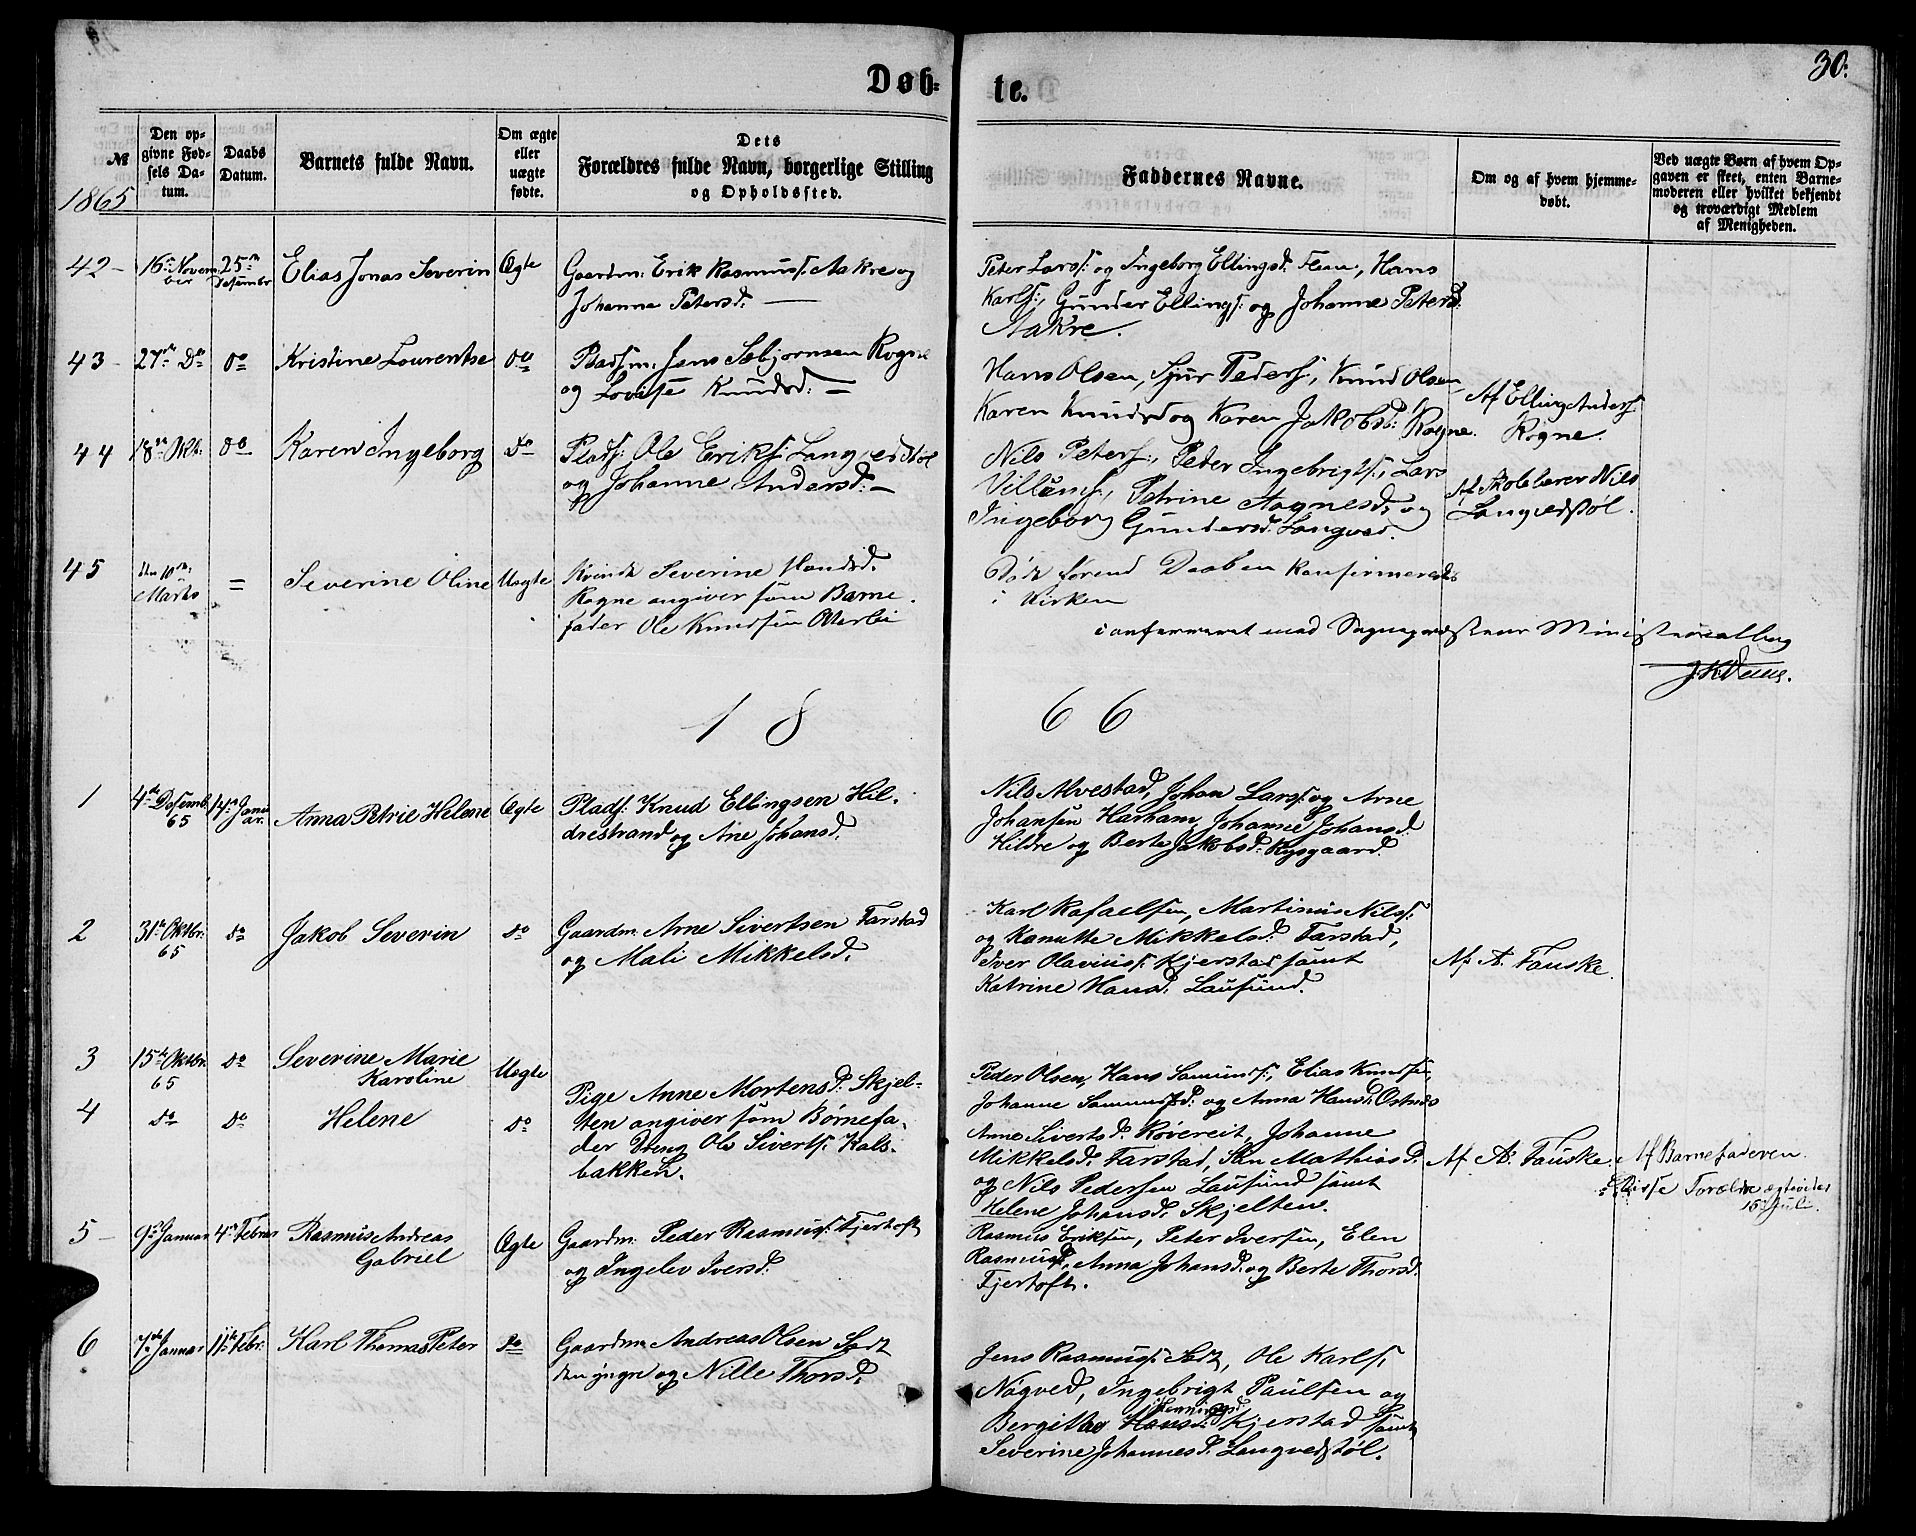 30.
Døb-
te.
№
Den op-
givne Fød-
sels Da-
tum.
Daabs
Datum.
Barnets fulde Navn.
Om ægte
eller
uægte
fødte.
Dets
Forældres fulde Navn, borgerlige Stilling
og Opholdssted.
Faddernes Navne.
Om og af hvem hjemme-
døbt.
Ved uægte Børn af hvem Op-
gaven er skeet, enten Barne-
moderen eller hvilket bekjendt
og troværdigt Medlem
af Menigheden.
1865
42 -
16de Novem
ber
25de
Desembr
Elias Jonas Severin
Ægte
Gaardm: Erik Rasmuss: Aakre og
Johanna Petersd: —
Peter Larss: og Ingeborg Ellingsd: Flem, Hans
Karls:, Gunder Ellings: og Johanne Petersd:
Aakre.
43 -
27de Do
do
Kristine Lourentse
do
Pladsm: Jens Sebjørnsen Rogne
og Lovise Knudsd: —
Hans Olsen, Sjur Peders:, Knud Olsen
Karen Knudsd og Karen Jakobsd: Rogne.
Af Elling Anders:
Rogne.
44
18de Okt:
do
Karen Ingeborg
do
Plads: Ole Eriks: Langvedstøl
og Johanne Andersd: —
Nils Peters:, Peder Ingebrigts:, Lars
Villums:, Petrine Aagnesd: og
Ingeborg Gundersd: Langved.
Af Skolelærer Nils
Langvedstøl.
45
den 10de
Marts
=
Severine Oline
Uægte
Kvinde Severine
Rogne angiver som Barne-
fader Ole Knudsen
Døde førend Daaben konfirmeredes
i Kirken
med Sognepræstens Ministerialbog
18
66
1
4de Desemb.
65
14de Janu
ar.
Anna Petrie Helene
Ægte
Plads: Knud Ellingsen Hil-
drestrand og Ane Johansd:
Nils Alvestad, Johan Lars: og Arne
Johansen Harham, Johanne Johansd:
Hildre og Berte Jakobsd: Rysgaard.
2
31te Oktbr:
65
do
Jakob Severin
do
Gaardm: Arne Sivertsen Farstad
og Mali Mikkelsd:
Karl Rafaelsen, Martinus Nils:
og Kanutte Mikkelsd: Farstad,
Iver Olavius: Kjerstad samt
Katrine Hansd: Lausund.
Af A. Fauske.
3
15de Oktbr.
65
do
Severine Marie
Karoline
Uægte
Pige Anne Mortensd: Skjel-
ten angiver som Børnefa-
der Dreng Ole Siverts: Hals-
bakken.
Peder Olsen, Hans Samunds:, Elias Knudsen,
Johanne Samundsd: og Anna Hansd: Østnes
4
do
do
Helene
do
Anne Sivertsd: Røvereit, Johanne
Mikkelsd: Farstad, Mathiasd:
og Nils Pedersen Lausund samt
Helene Johansd: Skjelten.
Af A. Fauske.
Af Barnefaderen.
Disse Forældre ægteviedes
15 Juli.
5 -
9de Januar
4de Februar
Rasmus Andreas
Gabriel
Ægte
Gaardm: Peder Rasmus: Fjertoft
og Ingelev Iversd:
Rasmus Eriksen, Peter Iversen, Elen
Rasmusd:, Anna Johansd: og Berte Thorsd:
Fjertoft.
6
7de Januar
11te Febr:
Karl Thomas Peter
do
Gaardm: Andreas Olsen
den yngre og Nille Thorsd:
Jens Rasmus: Ole Karls:
Nogved, Ingebrigt Paulsen og
Henningsd
Bergitte Hansd: Kjerstad samt
Severine Johannesd: Langvedstøl.